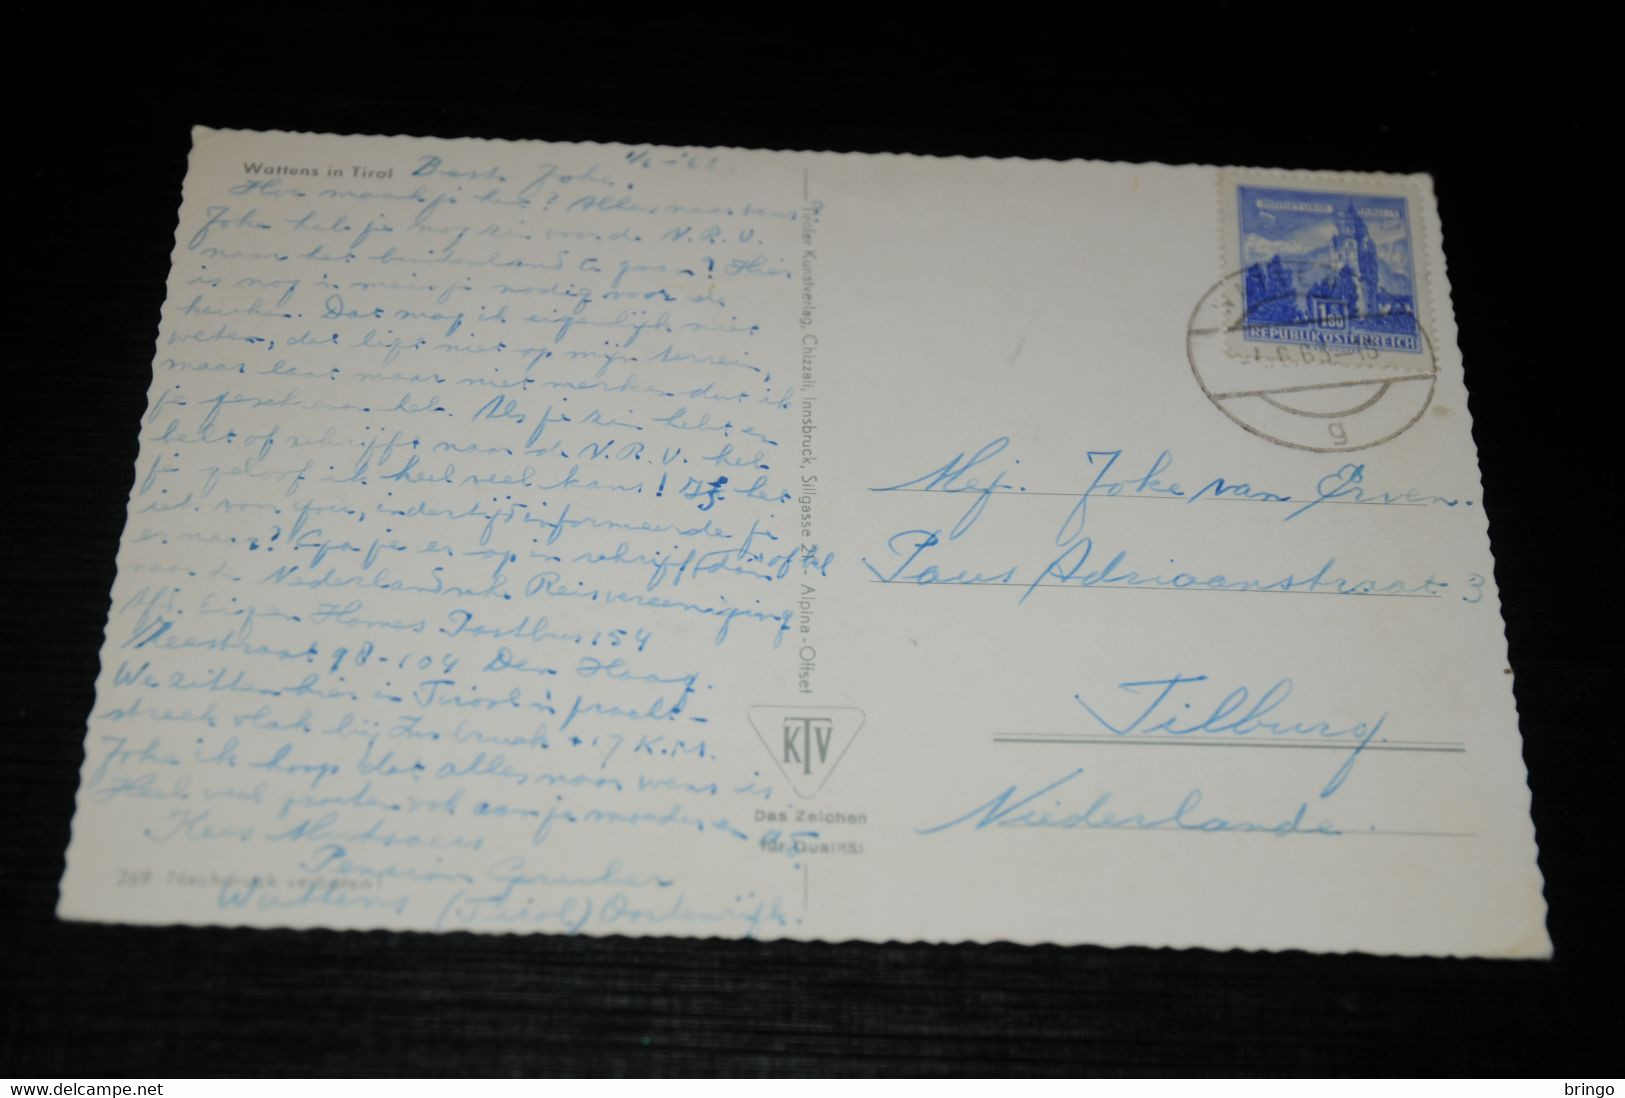 Wattens in Tirol
Beste Joke. 1/6-'62.
Hoe maak je het? Alles naar wens?
Joke heb je nog zin van de N.R.V.
naar het buitenland te gaan? Hier
is nog 'n meisje nodig voor de
keuken. Dat mag ik eigenlijk niet
weten, dat ligt niet op mijn terrein,
maar laat maar niet merken dat ik
je geschreven heb. Als je zin hebt en
belt of schrijft naar de N.R.V. heb
je geloof ik heel veel kans! Is het
iets van jou, indertijd informeerde je
er naar? Ga je er op in schrijf dan of bel
naar de Nederlandsche Reisvereeniging
Afd. Eigen Homes Postbus 154
98-104 Den Haag.
We zitten hier in Tirool 'n pracht-
streek vlak bij Insbruck ±17 K.M.
Joke ik hoop dat alles naar wens is
Heel veel groeten ook aan je moeder en
Kees
Pension Gruber
Wattens (Tirol) Oostenrijk.
269 Nachdruck verboten!
Tiroler Kunstverlag, Chizzali, Innsbruck, Sillgasse 21 - Alpina-Offset
KTV
Das Zeichen
für Qualität
1.80
REPUBLIK ÖSTERREICH
g
Mej. Joke van Erven.
Paus Adriaanstraat 3
Tilburg.
Niederlande.
bidstart.com
bringo